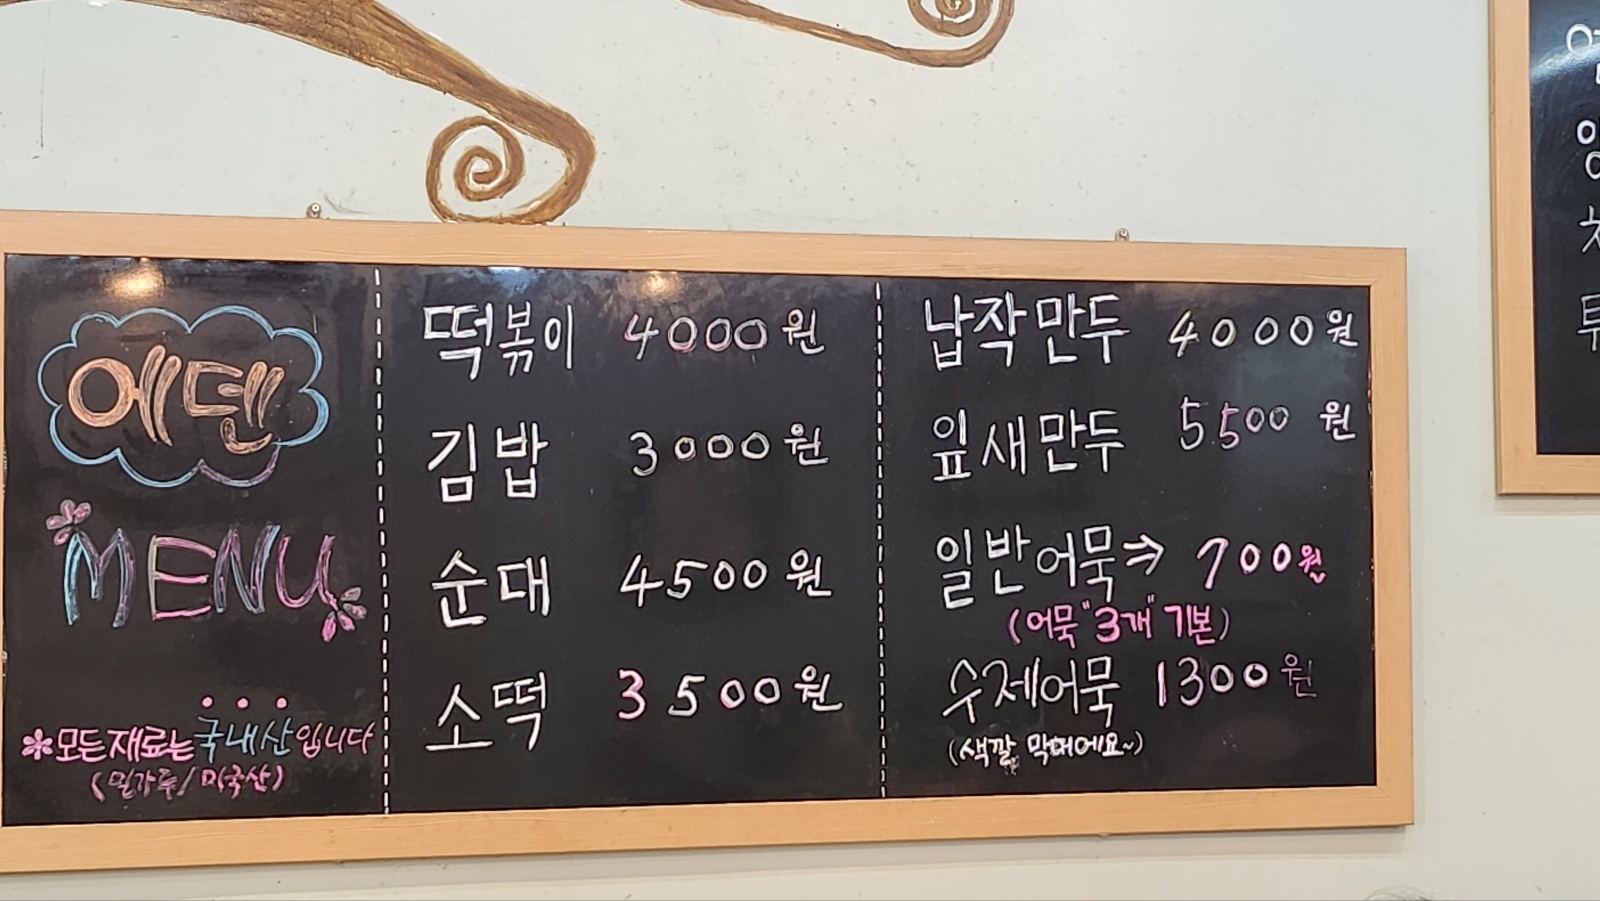 에덴
MENU
*모든재료는 국내산입니다
(밀가루/미국산)
떡볶이 4000원
김밥 3000원
순대 4500원
소떡 3500원
납작만두 4000원
잎새만두 5500원
일반어묵→ 700원
(어묵"3개"기본)
수제어묵 1300원
(색깔 막대에요~)